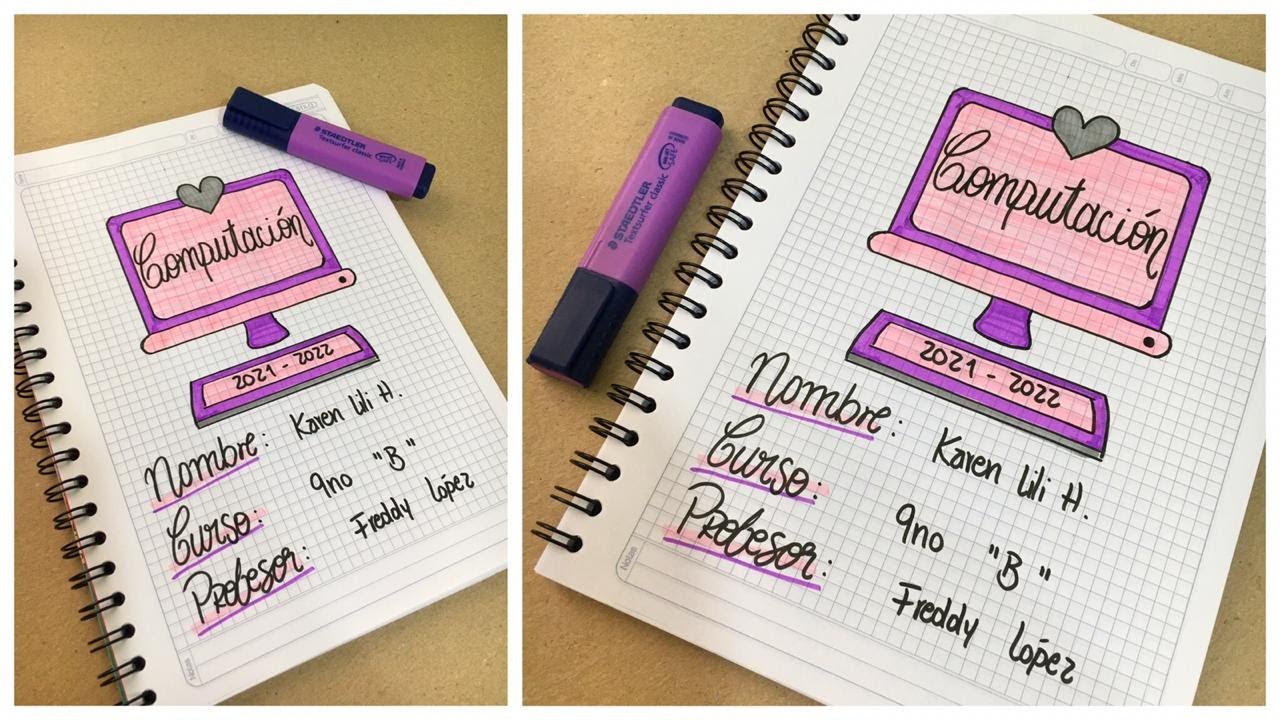 STAEDTLER
Textsurfer classic
Computación
2021 - 2022
Nombre: Karen Lili H.
Curso: 9no "B"
Profesor: Freddy López
Notas
STAEDTLER
Textsurfer classic
Computación
2021 - 2022
Nombre: Karen Lili H.
Curso: 9no "B"
Profesor: Freddy López
Notas